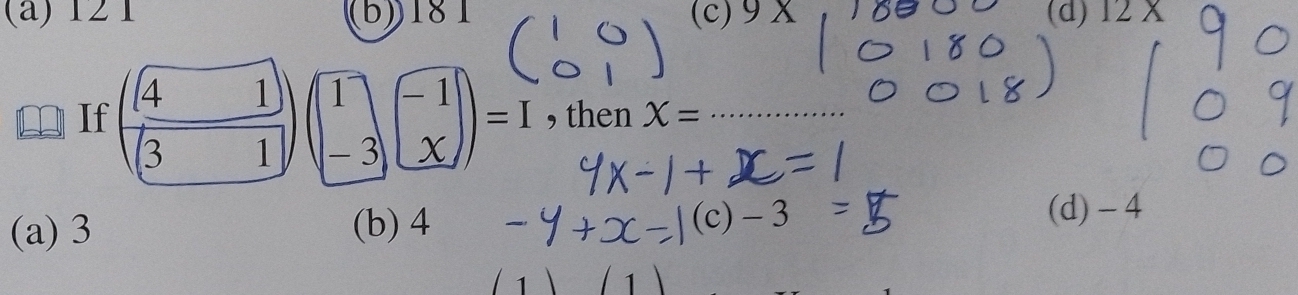 (a) 12 I (b) 18 I (c) 9 X (d) 12 X
( 1 0
0 1 )
0 1 8 0
0 0 1 8 )
9 0
0 9
0 0
If ( 4 1
3 1 ) ( 1 -1
-3 X ) = I , then X = ...............
4x-1+x=1
-4+x=1 = 5
(a) 3 (b) 4 (c) – 3 (d) – 4
( 1 ) ( 1 )